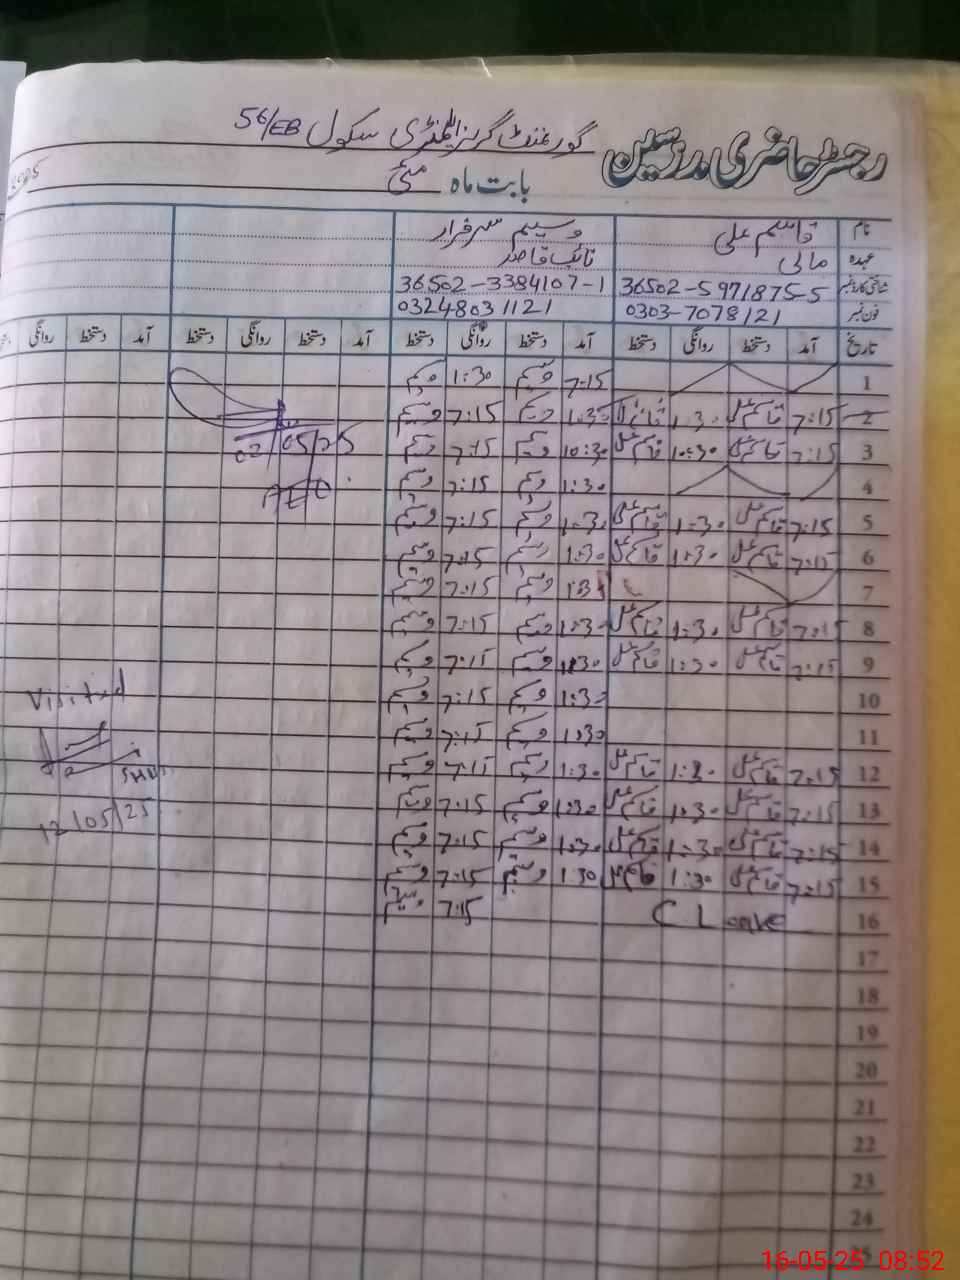 رجسٹر حاضری مدرسین گورنمنٹ گرلز ایلیمنٹری سکول 56/EB
بابت ماہ مئی
نام قاسم علی وسیم سرفراز
عہدہ مالی نائب قاصد
شناختی کارڈ نمبر 36502-5971875-5 36502-3384107-1
فون نمبر 0303-7078121 03248031121
تاریخ آمد دستخط روانگی دستخط آمد دستخط روانگی دستخط آمد دستخط روانگی دستخط آمد دستخط روانگی
1 7:15 وسیم 1:30 وسیم
2 7:15 قاسم علی 1:30 قاسم علی 1:30 وسیم 7:15 وسیم
3 7:15 قاسم علی 10:30 قاسم علی 10:30 وسیم 7:15 وسیم
4 1:30 وسیم 7:15 وسیم
5 7:15 قاسم علی 1:30 قاسم علی 1:30 وسیم 7:15 وسیم
6 7:15 قاسم علی 1:30 قاسم علی 1:30 وسیم 7:15 وسیم
7 1:30 وسیم 7:15 وسیم
8 7:15 قاسم علی 1:30 قاسم علی 1:30 وسیم 7:15 وسیم
9 7:15 قاسم علی 1:30 قاسم علی 1:30 وسیم 7:15 وسیم
10 1:30 وسیم 7:15 وسیم
11 1:30 وسیم 7:15 وسیم
12 7:15 قاسم علی 1:30 قاسم علی 1:30 وسیم 7:15 وسیم
13 7:15 قاسم علی 1:30 قاسم علی 1:30 وسیم 7:15 وسیم
14 7:15 قاسم علی 1:30 قاسم علی 1:30 وسیم 7:15 وسیم
15 7:15 قاسم علی 1:30 قاسم علی 1:30 وسیم 7:15 وسیم
16 C Leave 7:15 وسیم
17
18
19
20
21
22
23
24
25
02/05/25
AEO
Visited
12/05/25
16-05-25 08:52